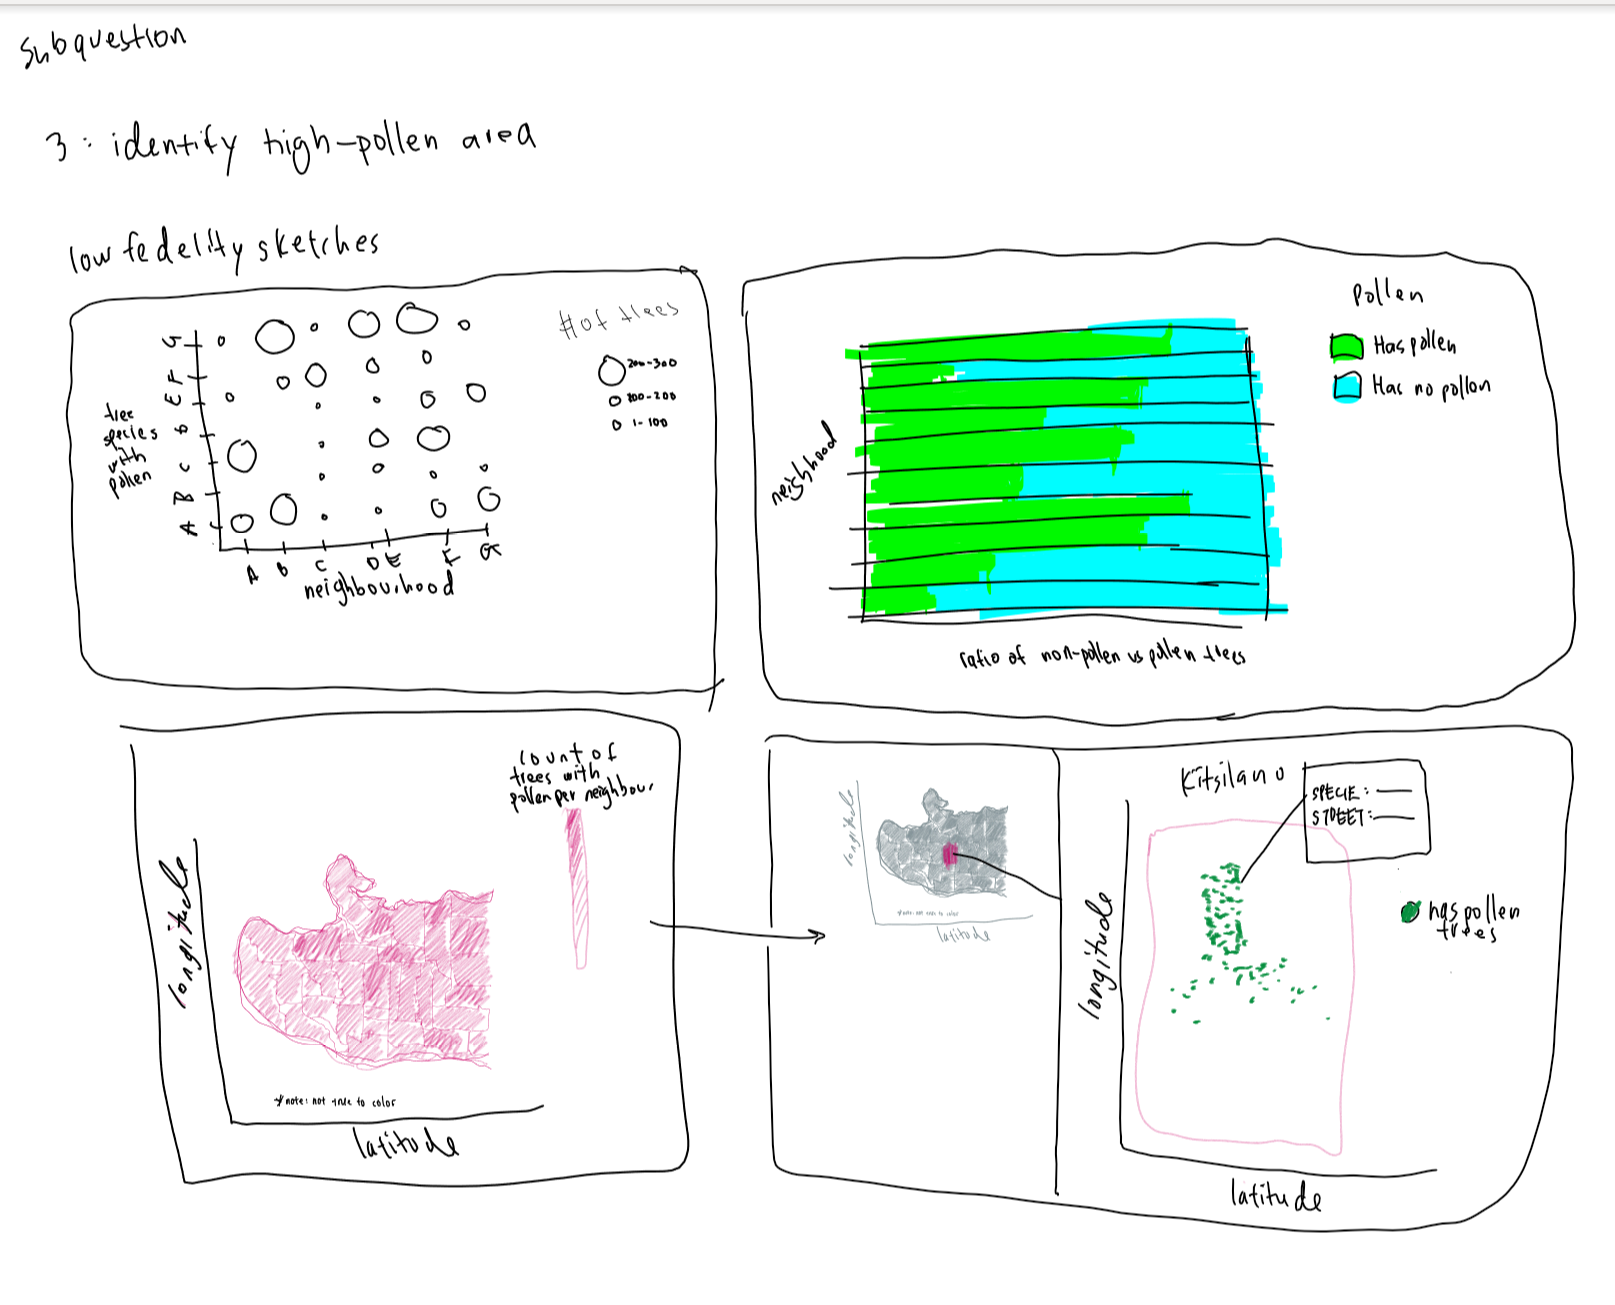 Subquestion
3: identify high-pollen area
low fedelity sketches
# of trees
200-300
100-200
1-100
tree
species
with
pollen
G
F
E
D
C
B
A
A B C D E F G
neighbourhood
Pollen
Has pollen
Has no pollen
neighhood
ratio of non-pollen vs pollen trees
count of
trees with
pollen per neighbour.
longitude
*note: not true to color
latitude
longitude
*note: not true to color
latitude
Kitsilano
SPECIE:
STREET:
longitude
has pollen
trees
latitude